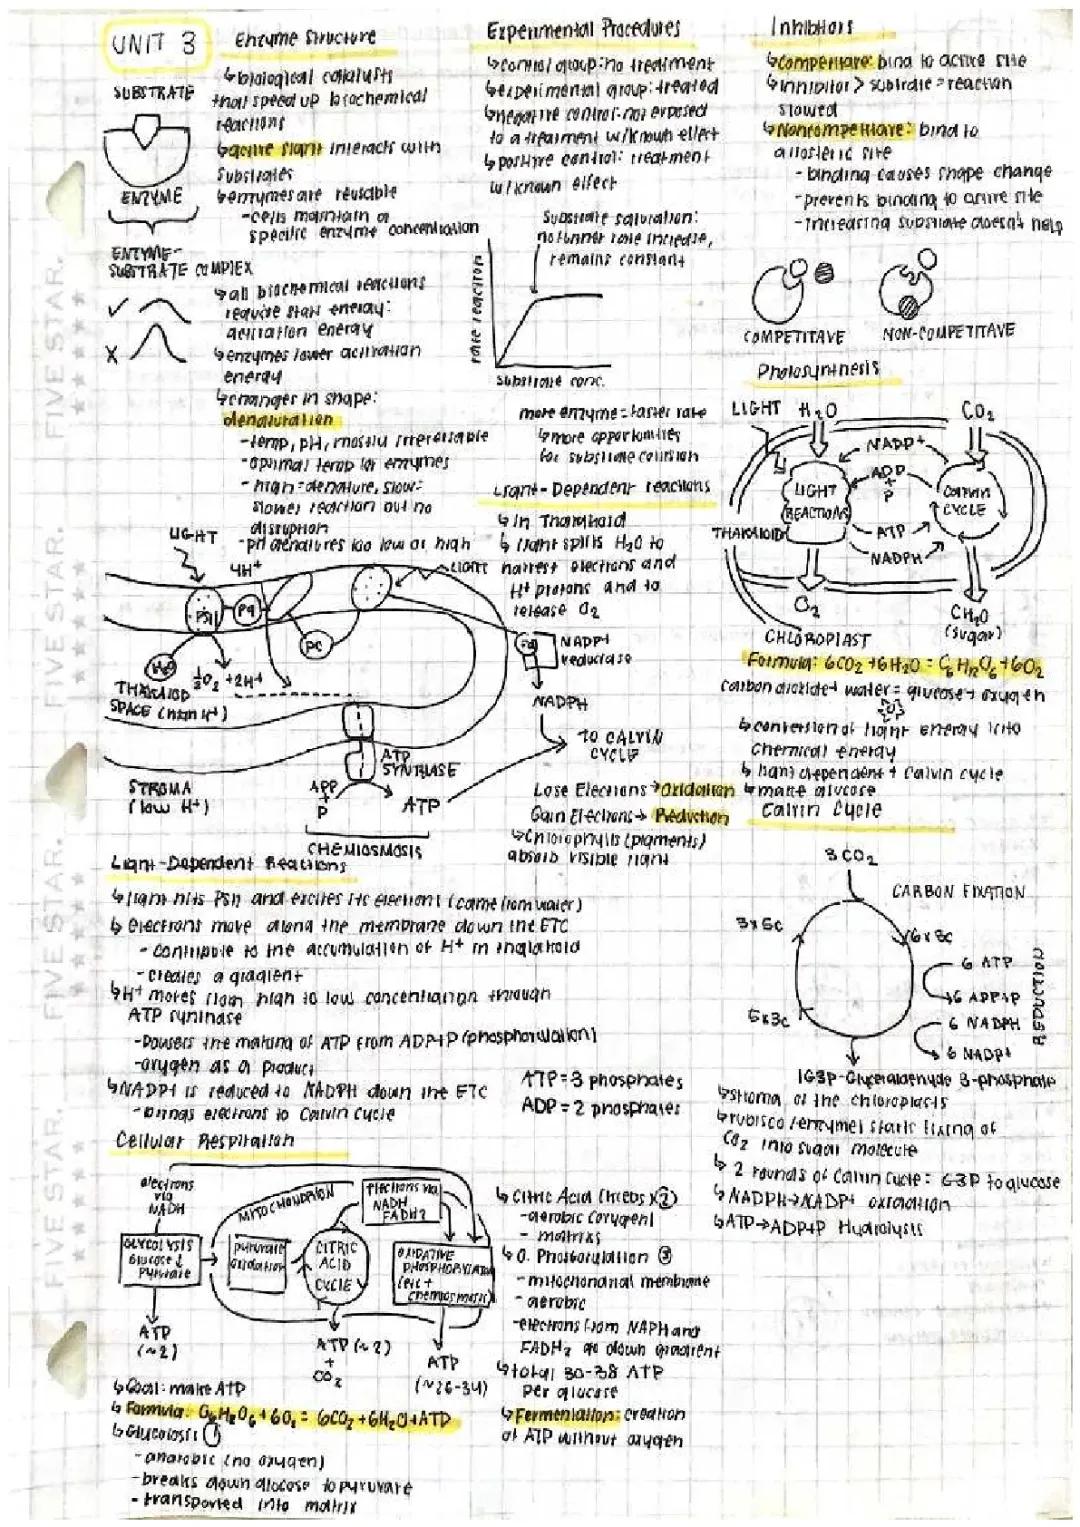 UNIT 3
SUBSTRATE
ENZYME
ENZYME-
SUBSTRATE COMPLEX
Enzyme Structure
↳biological catalysts
that speed up biochemical
reactions
↳active site interacts with
substrates
↳enzymes are reusable
-cells maintain a
specific enzyme concentration
↳all biochemical reactions
require start energy:
activation energy
↳enzymes lower activation
energy
↳changes in shape:
denaturation
-temp, pH, mostly irreversable
-optimal temp for enzymes
-high=denature, slow=
slower reaction but no
disruption
-pH denatures too low or high
Experimental Procedures
↳control group: no treatment
↳experimental group: treated
↳negative control: not exposed
to a treatment w/known effect
↳positive control: treatment
w/known effect
Substrate saturation:
no further rate increase,
remains constant
rate reaction
Substrate conc.
more enzyme = faster rate
↳more opportunities
for substrate collision
Inhibitors
↳Competitave: bind to active site
↳inhibitor > substrate = reaction
slowed
↳Noncompetitave: bind to
allosteric site
-binding causes shape change
-prevents binding to active site
-increasing substrate doesn't help
COMPETITAVE
NON-COMPETITAVE
Photosynthesis
LIGHT H₂O CO₂
NADP+
ADP
+
P
LIGHT
REACTIONS
CALVIN
CYCLE
ATP
NADPH
THAKALOID
O₂
CH₂O
(sugar)
CHLOROPLAST
Formula: 6CO₂+6H₂O = C₆H₁₂O₆+6O₂
carbon dioxide+ water= glucose+ oxygen
↳conversion of light energy into
chemical energy
↳light dependent + Calvin cycle
↳make glucose
Light-Dependent reactions
↳In Thakaloid
↳light splits H₂O to
harvest electrons and
H+ protons and to
release O₂
LIGHT
4H+
LIGHT
PSII
Pq
PC
Fd
NADP+
reductase
H₂O
½O₂ +2H+
THAKALOID
SPACE (high H+)
NADPH
TO CALVIN
CYCLE
ATP
SYNTHASE
STROMA
(low H+)
ADP
+
P
ATP
CHEMIOSMOSIS
Lose Electrons→Oxidation
Gain Electrons→ Reduction
↳Chlorophylls (pigments)
absorb visible light
Light-Dependent Reactions
↳light hits PSII and excites its electrons (came from water)
↳electrons move along the membrane down the ETC
-contribute to the accumulation of H+ in thylakoid
-creates a gradient
↳H+ moves from high to low concentration through
ATP synthase
-powers the making of ATP from ADP+P (phosphorylation)
-oxygen as a product
↳NADP+ is reduced to NADPH down the ETC
-brings electrons to Calvin cycle
ATP=3 phosphates
ADP=2 phosphates
Calvin Cycle
3 CO₂
CARBON FIXATION
3x5C
6x3C
6 ATP
6 ADP+P
6 NADPH
6 NADP+
REDUCTION
1G3P-Glyceraldehyde 3-phosphate
↳stroma of the chloroplasts
↳rubisco (enzyme) starts fixing of
CO₂ into sugar molecule
↳2 rounds of Calvin Cycle: G3P to glucose
↳NADPH→NADP+ oxidation
↳ATP→ADP+P Hydrolysis
Cellular Respiration
electrons
via
NADH
MITOCHONDRION
electrons via
NADH
FADH2
GLYCOLYSIS
Glucose ↓
Pyruvate
pyruvate
oxidation
CITRIC
ACID
CYCLE
OXIDATIVE
PHOSPHORYLATION
(etc +
chemiosmosis)
ATP
(~2)
ATP (~2)
+
CO₂
ATP
(~26-34)
↳Goal: make ATP
↳Formula: C₆H₁₂O₆+6O₂ = 6CO₂+6H₂O+ATP
↳Glycolosis ①
-anarobic (no oxygen)
-breaks down glocose to pyruvate
-transported into matrix
↳Citric Acid (Krebs) ②
-aerobic (oxygen)
-matrixs
↳O. Phosforylation ③
-mitochondrial membrane
-aerobic
-electrons from NADH and
FADH₂ go down gradient
↳total 30-38 ATP
per glucose
↳Fermentation: creation
of ATP without oxygen
FIVE STAR.
FIVE STAR.
FIVE STAR.
FIVE STAR.